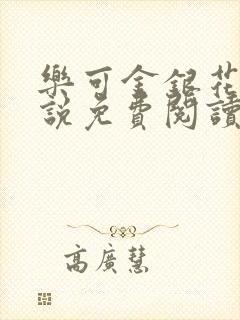 樂可金銀花
說免費閱讀
高廣慧